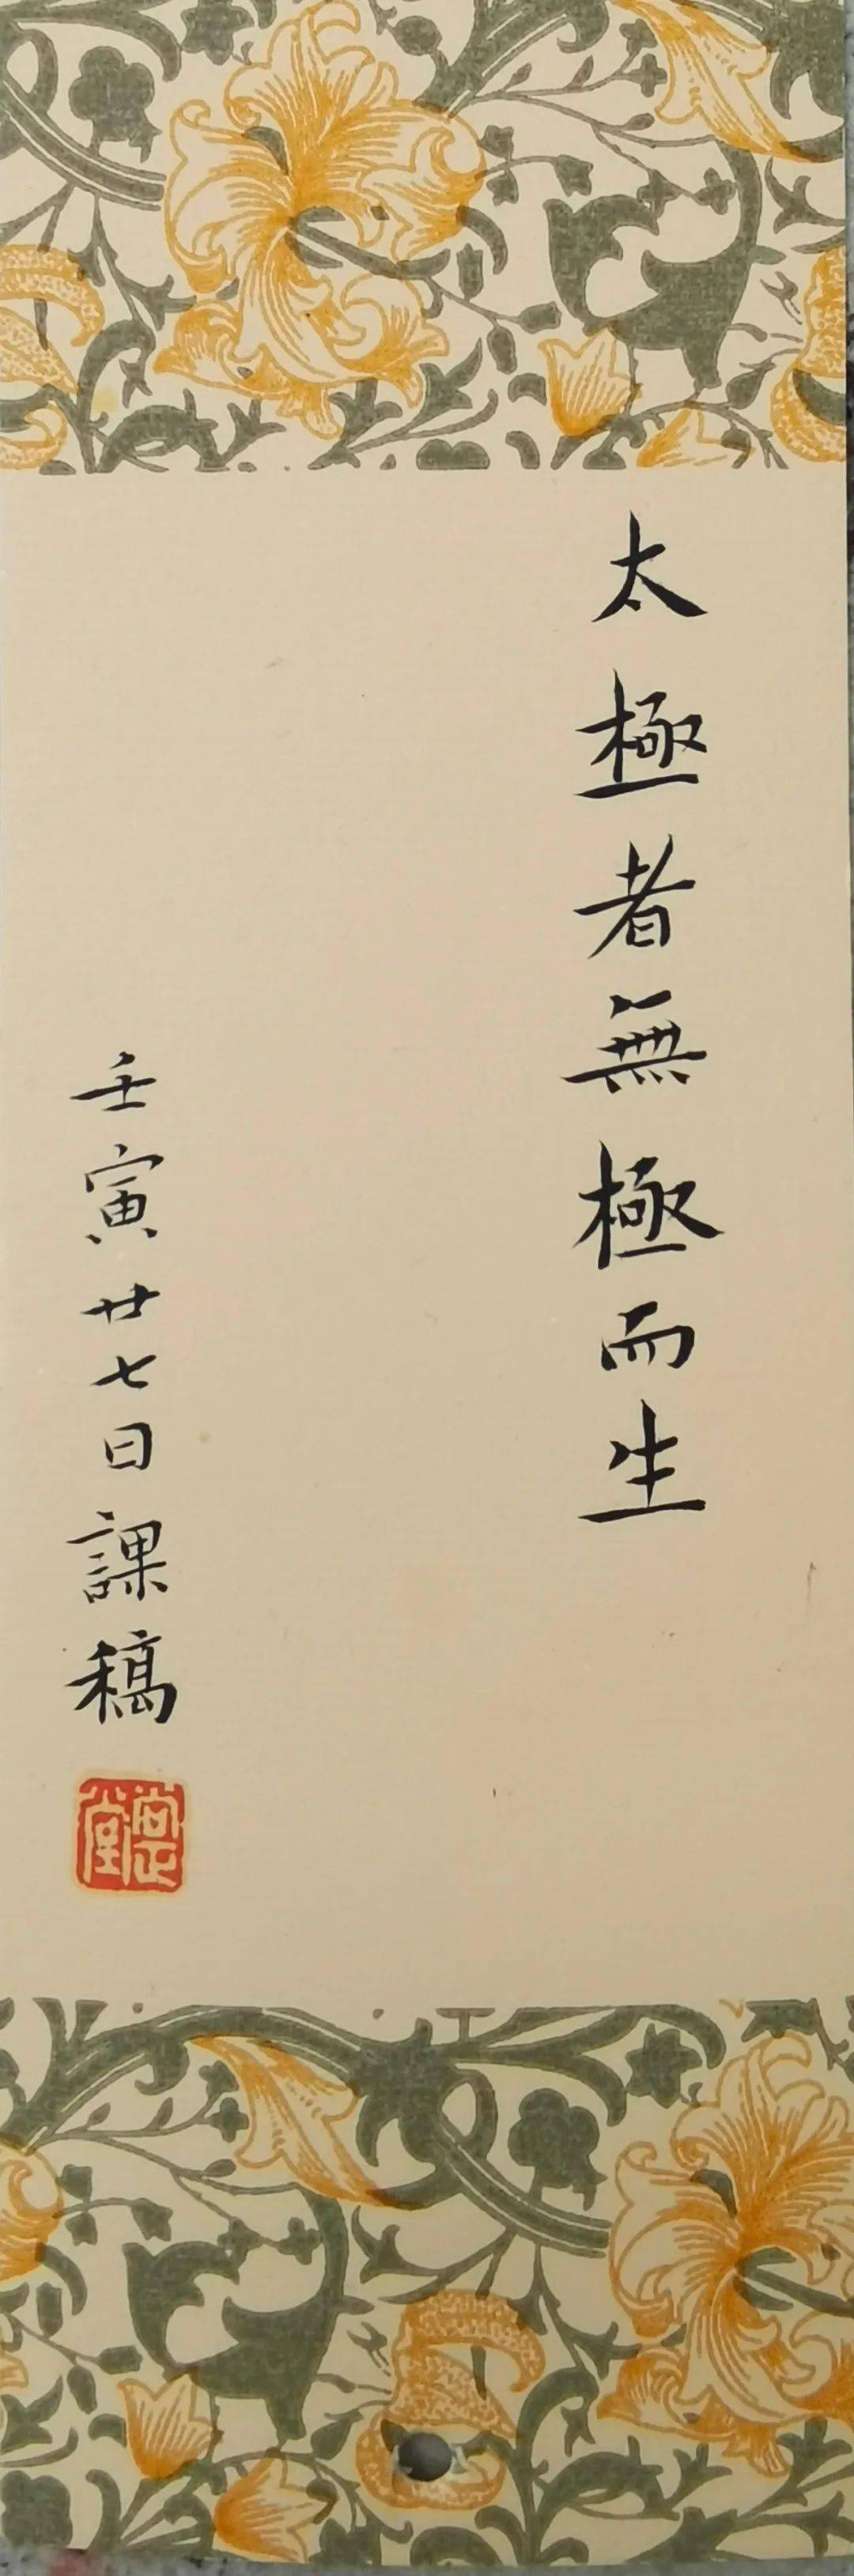 太極者無極而生
壬寅廿七日課稿